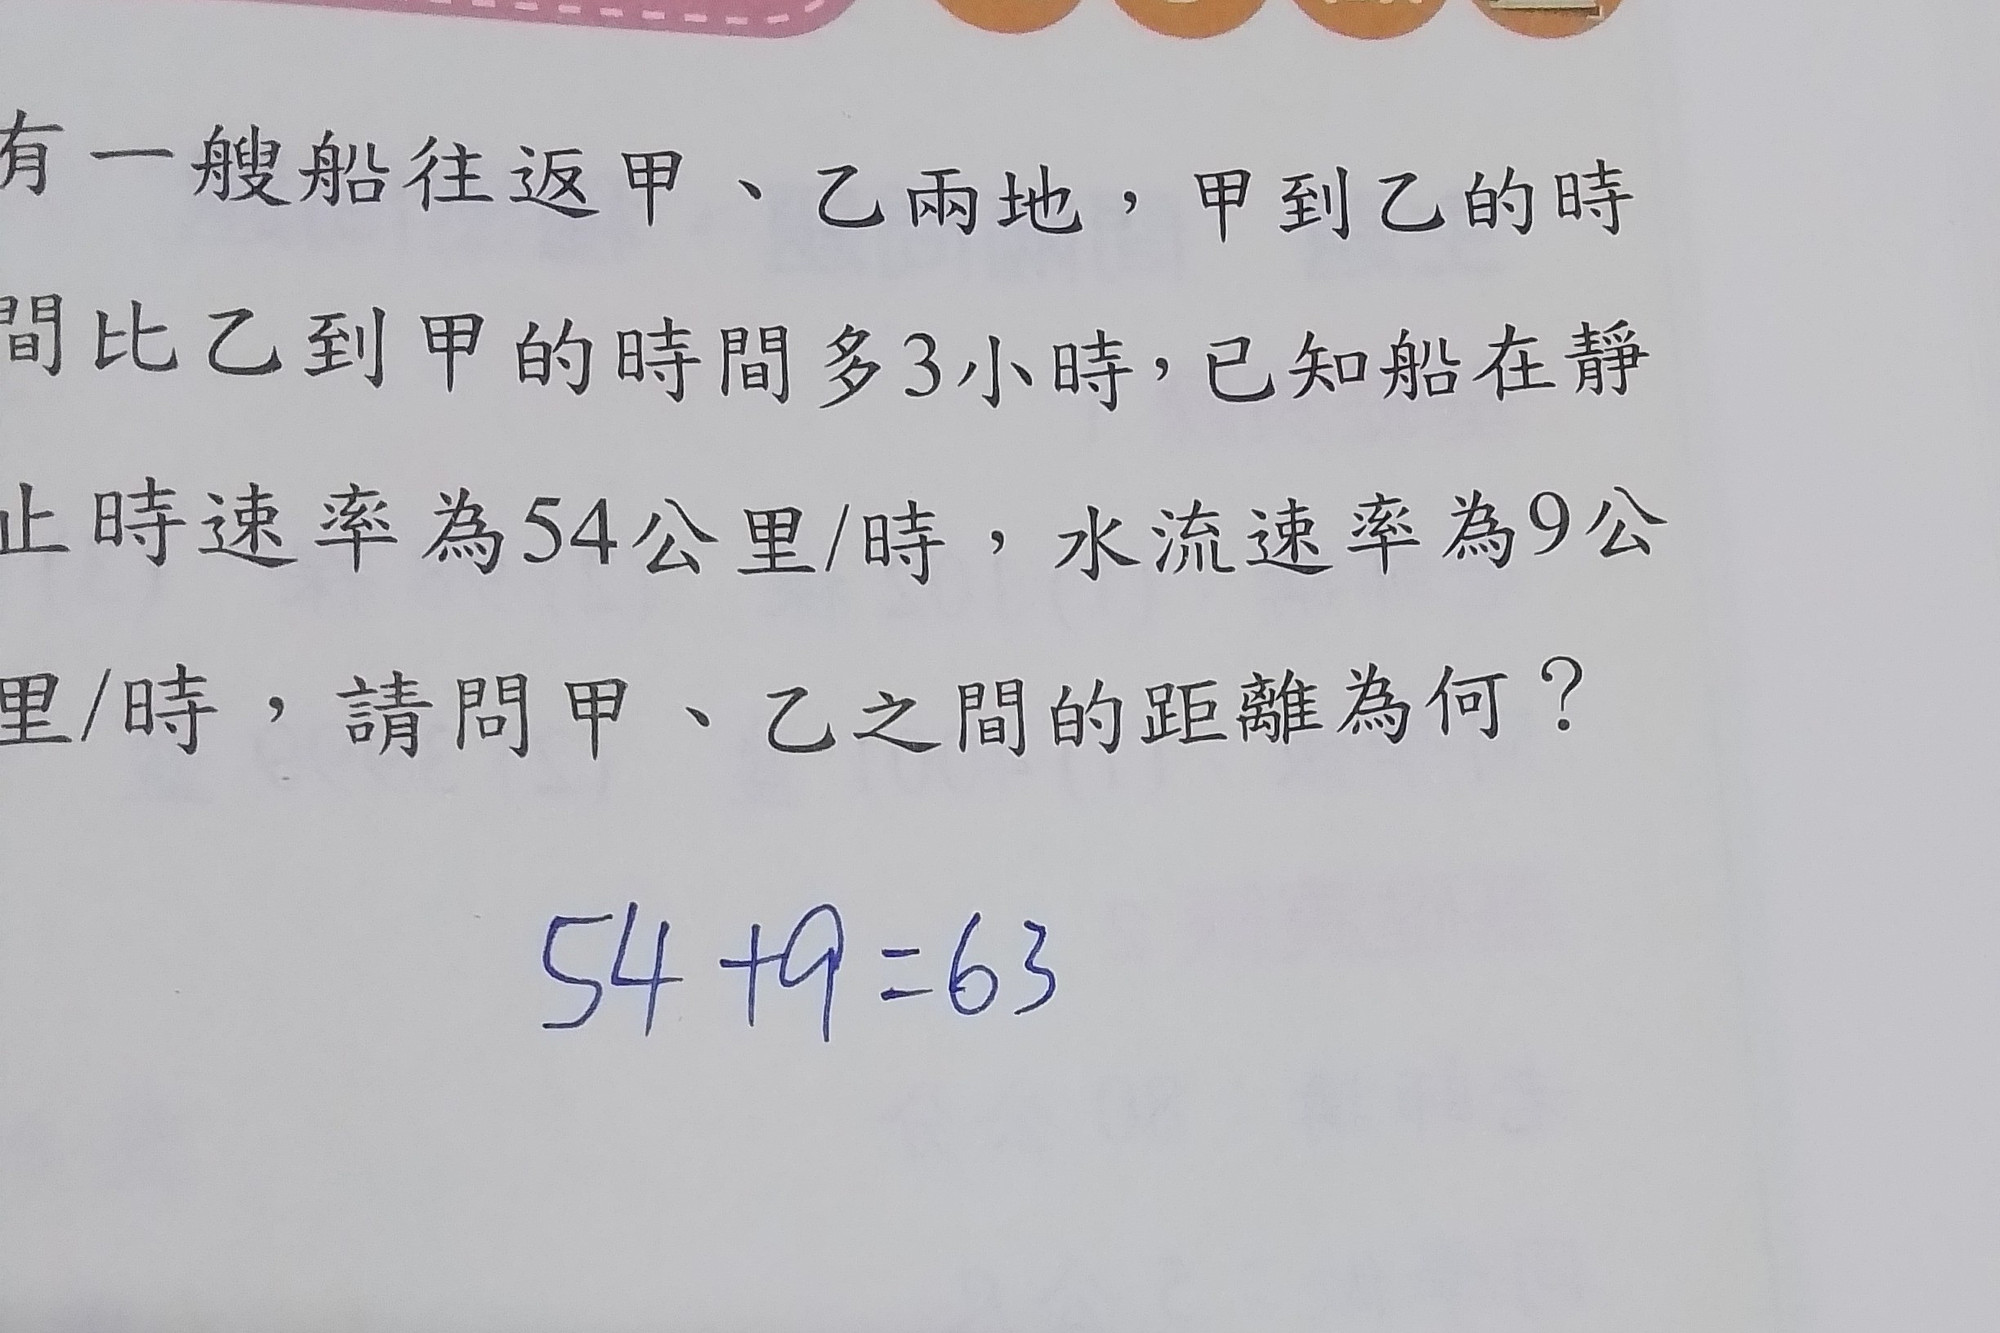 有一艘船往返甲、乙兩地，甲到乙的時
間比乙到甲的時間多3小時，已知船在靜
止時速率為54公里/時，水流速率為9公
里/時，請問甲、乙之間的距離為何？
54+9=63